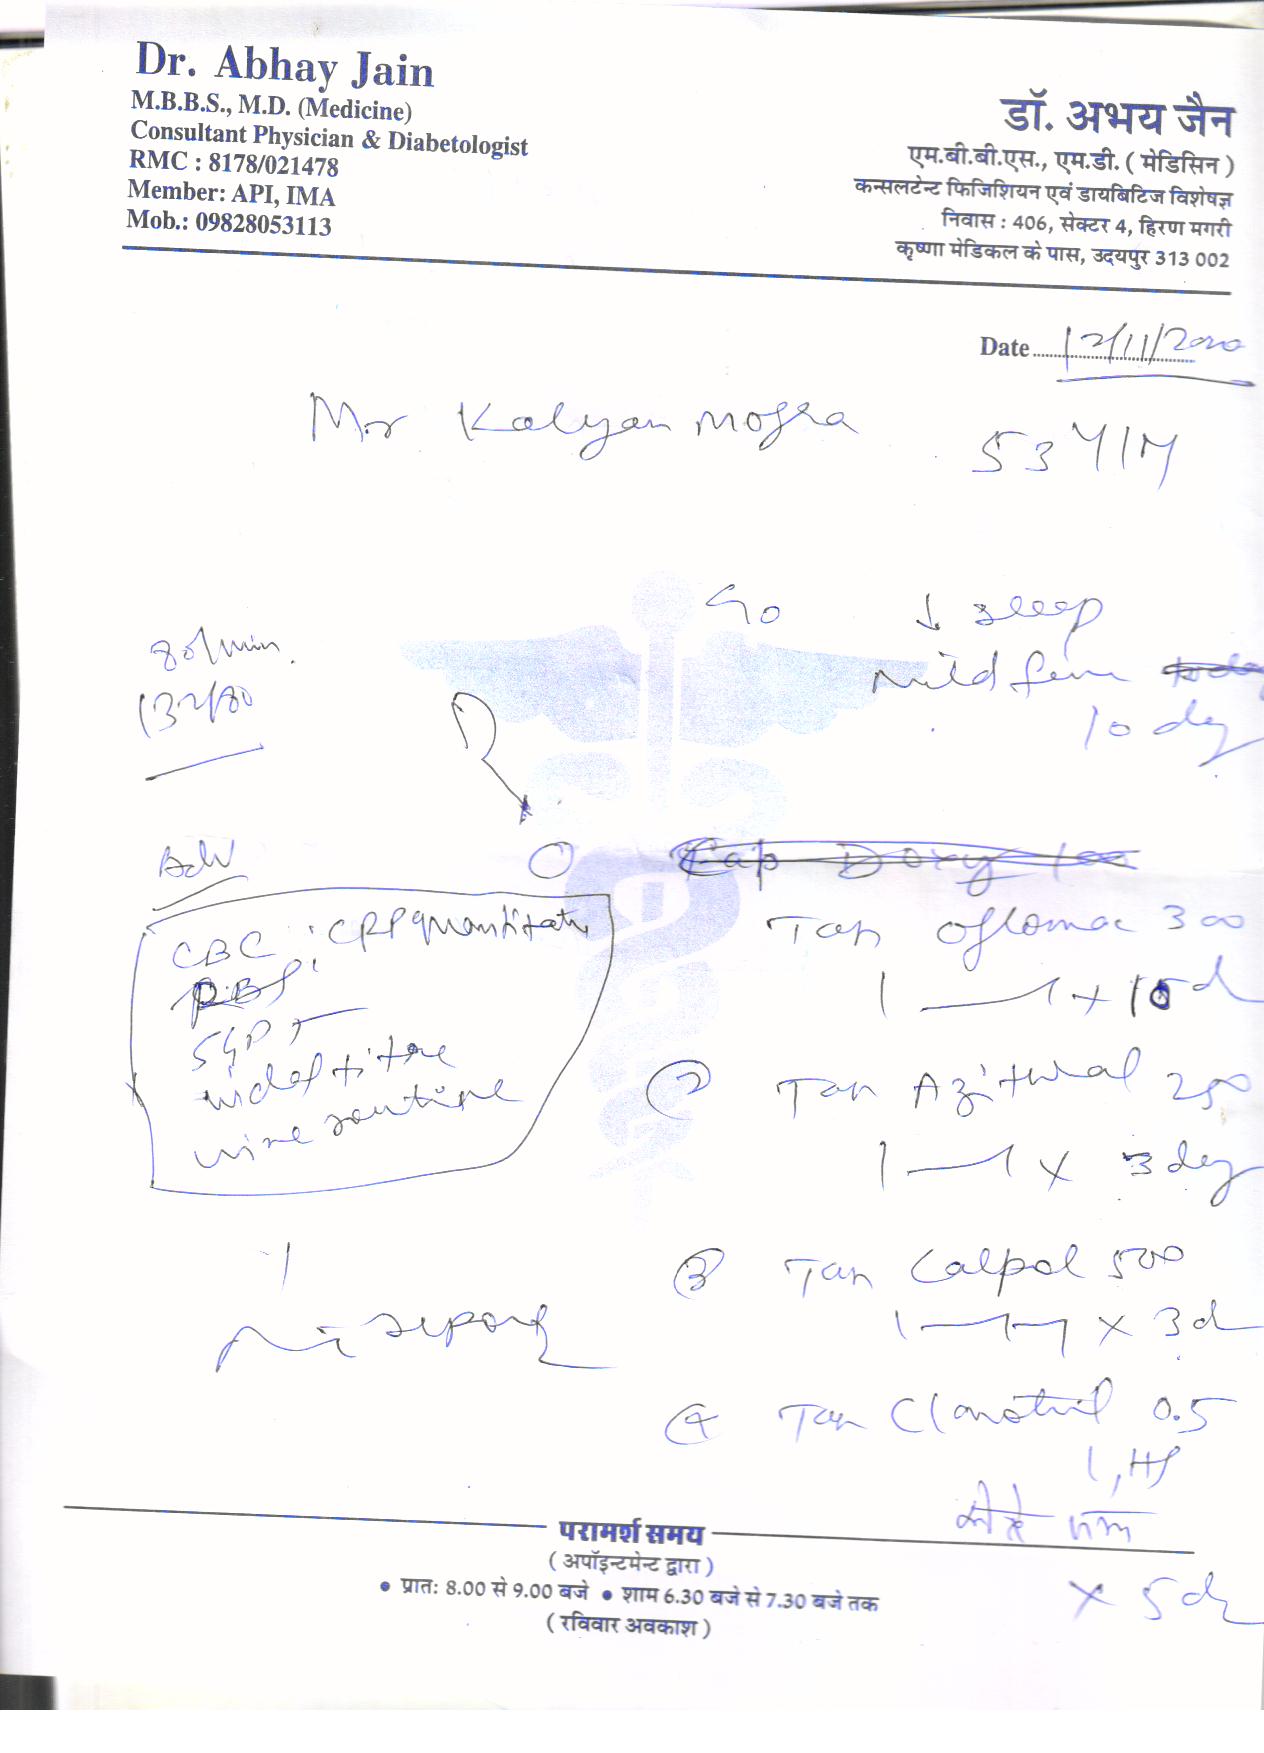 Dr. Abhay Jain
M.B.B.S., M.D. (Medicine)
Consultant Physician & Diabetologist
RMC : 8178/021478
Member: API, IMA
Mob.: 09828053113
डॉ. अभय जैन
एम.बी.बी.एस., एम.डी. ( मेडिसिन )
कन्सलटेन्ट फिजिशियन एवं डायबिटिज विशेषज्ञ
निवास : 406, सेक्टर 4, हिरण मगरी
कृष्णा मेडिकल के पास, उदयपुर 313 002
Date 12/11/2020
Mr Kalyan Mogra 53 Y/M
↓ sleep
80/min.
mild
132/80
10 day
Adv
Cap Doxy 100
CBC CRP quantitative
Tab Oflomac 300
SGPT
titre
urine routine
② Tab Azithral 250
1—1 x 3 day
③ Tab Calpol 500
x 3d
report
④ Tab Clonotril 0.5
1, HS
x 5d
परामर्श समय
( अपॉइन्टमेन्ट द्वारा )
• प्रातः 8.00 से 9.00 बजे • शाम 6.30 बजे से 7.30 बजे तक
( रविवार अवकाश )